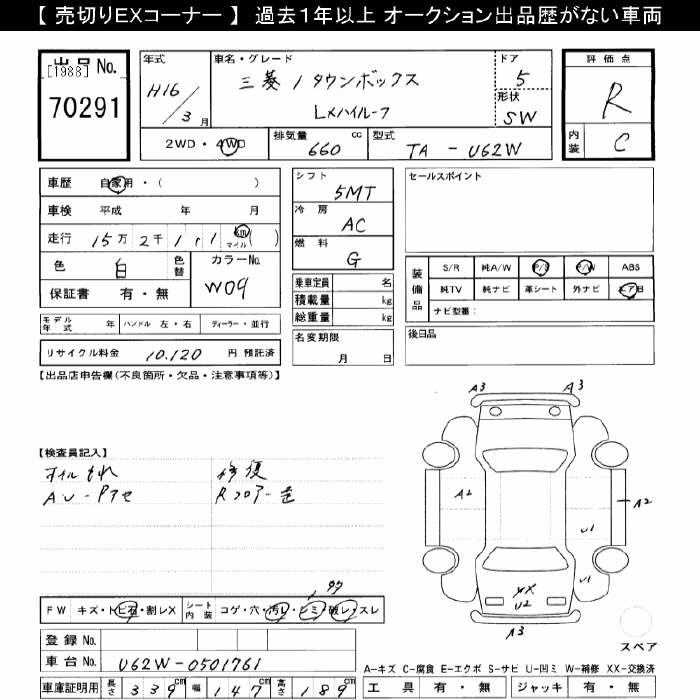 【 売切りEXコーナー 】 過去1年以上 オークション出品歴がない車両
出品 No.
[1988]
70291
年式
H16 / 3 月
車名・グレード
三菱 / タウンボックス
LXハイルーフ
ドア
5
形状
SW
評価点
R
内装
C
2WD・4WD
排気量
660 cc
型式
TA - U62W
車歴 自家用・( )
車検 平成 年 月
走行 15万 2千 1 1 1 km マイル ( )
色 白
色替
カラーNo.
W09
保証書 有・無
シフト
5MT
冷房
AC
燃料
G
乗車定員 名
積載量 kg
総重量 kg
セールスポイント
装備品
S/R 純A/W P/S P/W ABS
純TV 純ナビ 革シート 外ナビ エアB
ナビ型番:
モデル年式 年 ハンドル 左・右 ディーラー・並行
リサイクル料金 10,120 円 預託済
名変期限
月 日
後日品
【出品店申告欄(不良箇所・欠品・注意事項等)】
A3 A3
【検査員記入】
オイルもれ 修復
Rフロアー
A2 A2
U1
U1
XX
U2
A3
FW キズ・トビ石・割レX
シート内装 コゲ・穴・汚レ・シミ・破レ・スレ
スペア
登録 No.
車台 No. U62W-0501761
車庫証明用 長さ 339 cm 幅 147 cm 高さ 189 cm
A-キズ C-腐食 E-エクボ S-サビ U-凹ミ W-補修 XX-交換済
工具 有・無 ジャッキ 有・無